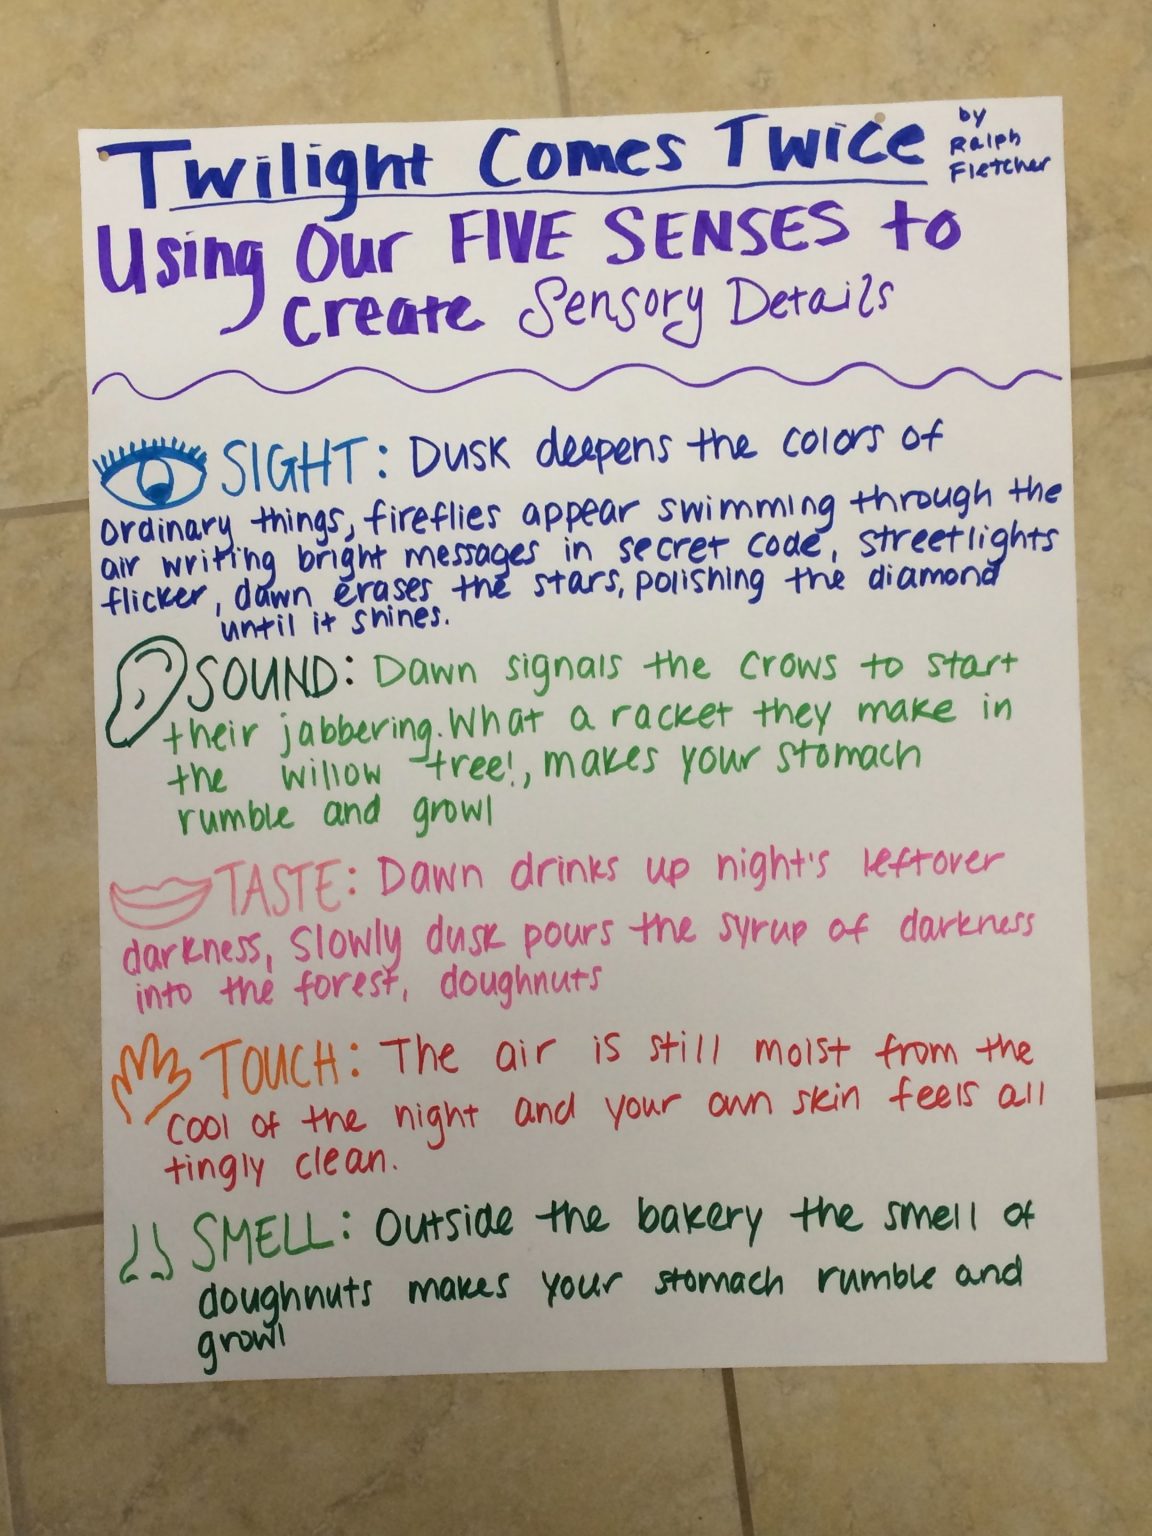 Twilight Comes Twice
by
Ralph
Fletcher
Using Our FIVE SENSES to
Create Sensory Details
SIGHT: Dusk deepens the colors of
ordinary things, fireflies appear swimming through the
air writing bright messages in secret code, streetlights
flicker, dawn erases the stars, polishing the diamond
until it shines.
SOUND: Dawn signals the crows to start
their jabbering. What a racket they make in
the willow tree!, makes your stomach
rumble and growl
TASTE: Dawn drinks up night's leftover
darkness, slowly dusk pours the syrup of darkness
into the forest, doughnuts
TOUCH: The air is still moist from the
cool of the night and your own skin feels all
tingly clean.
SMELL: Outside the bakery the smell of
doughnuts makes your stomach rumble and
growl